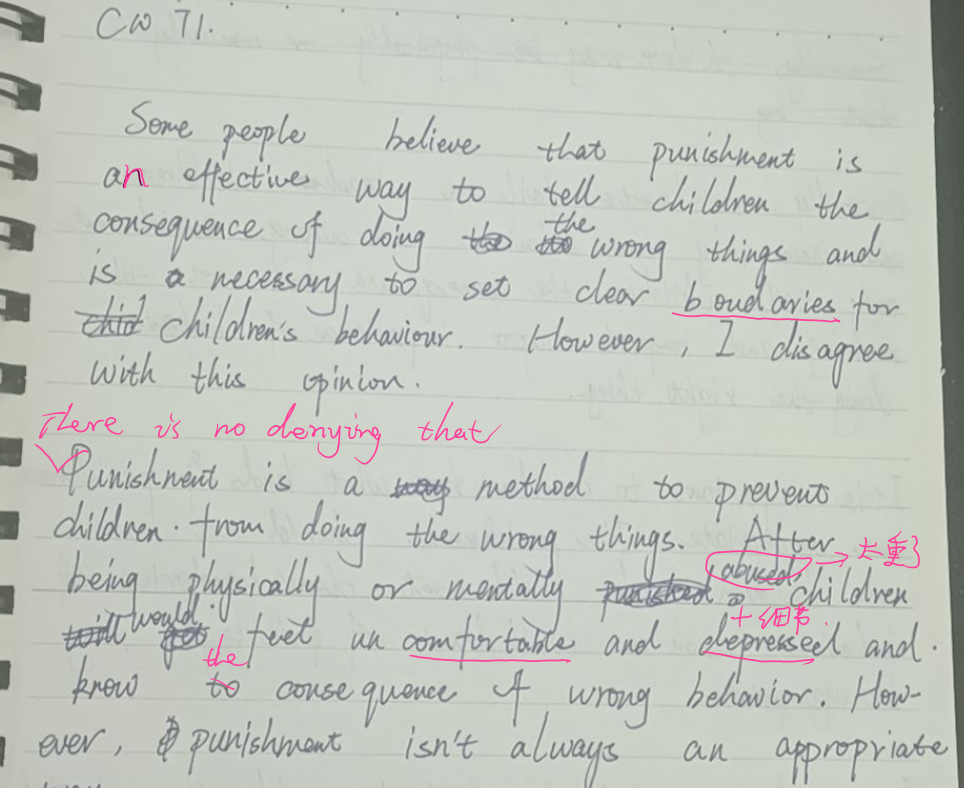 CW 71.
Some people believe that punishment is
an effective way to tell children the
consequence of doing the wrong things and
is a necessary to set clear boudaries for
children's behaviour. However, I disagree
with this opinion.
There is no denying that
Punishment is a method to prevent
children. from doing the wrong things. After
being physically or mentally abused, children → 太重了
+细节
would feel un comfortable and depressed and.
know the consequence of wrong behavior. How-
ever, punishment isn't always an appropriate